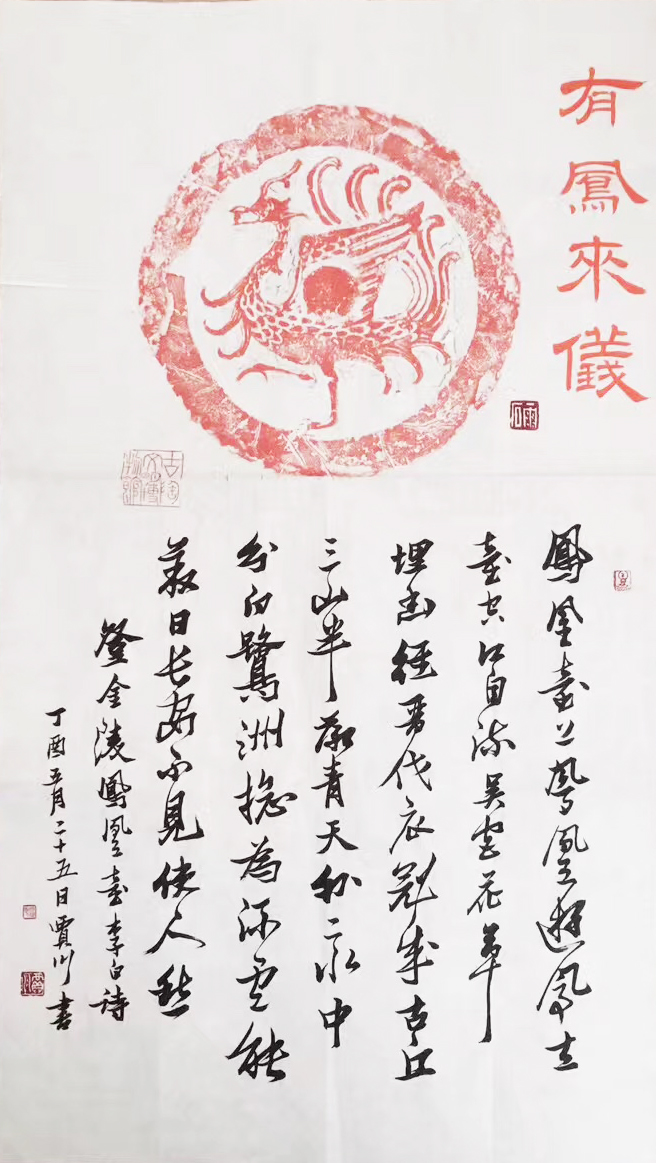 有鳳來儀
雨石
古陶文明博物館
鳳凰臺上鳳凰遊鳳去
臺空江自流吳宮花草
埋幽徑晉代衣冠成古丘
三山半落青天外二水中
分白鷺洲總為浮雲能
蔽日長安不見使人愁
登金陵鳳凰臺李白詩
丁酉五月二十五日賈川書